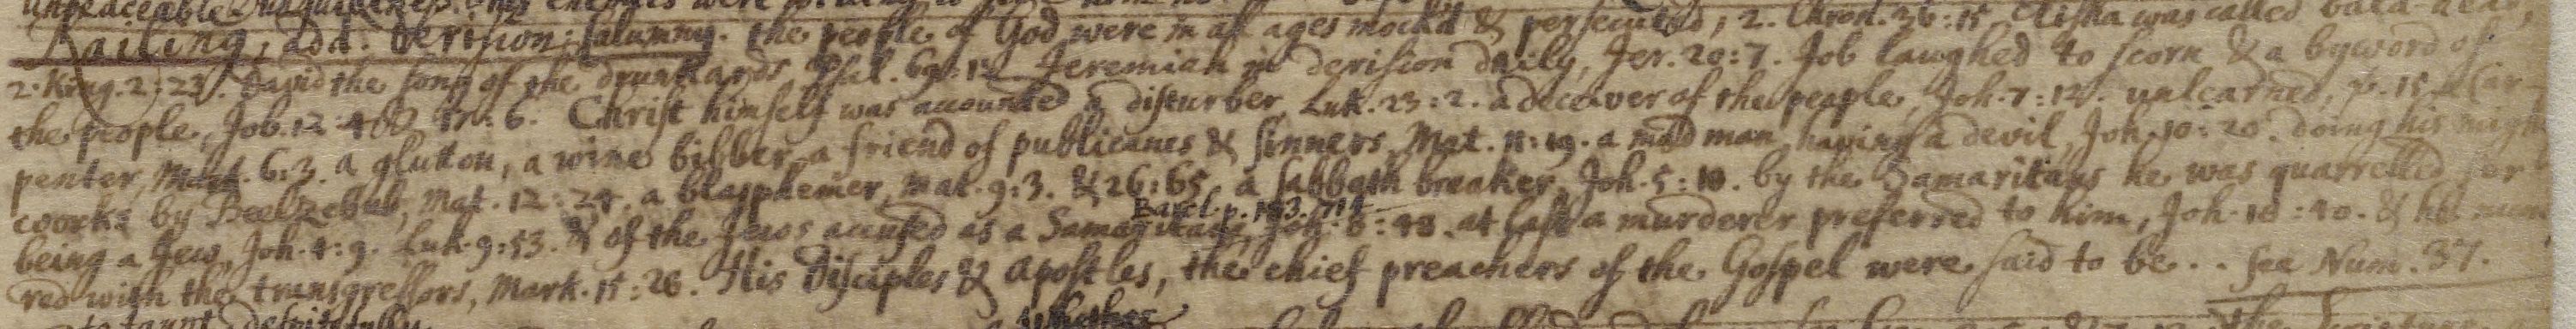 Railing, add. Derision: Calumny. the people of God were in all ages mock'd & persecuted, 2. Chron. 36:15. Elisha was called bald head,
2. King. 2:23. David the song of the drunkards, Psal. 69:12. Jeremiah in derision daily, Jer. 20:7. Job laughed to scorn & a byword of
the people, Job. 12:4 & 17:6. Christ himself was accounted a disturber, Luk. 23:2. a deceiver of the people, Joh. 7:12. unlearned, v. 15. a Car-
penter, Mark. 6:3. a glutton, a wine bibber, a friend of publicanes & sinners, Mat. 11:19. a mad man, having a devil, Joh. 10:20. doing his
works by Beelzebub, Mat. 12:24. a blasphemer, Mat. 9:3. & 26:65. a sabbath breaker, Joh. 5:18. by the Samaritans he was quarrelled for
being a Jew, Joh. 4:9. Luk. 9:53. & of the Jews accused as a Samaritan, Joh. 8:48. at last a murderer preferred to him, Joh. 18:40. & he num
red with the transgressors, Mark. 15:28. His Disciples & Apostles, the chief preachers of the Gospel were said to be.. See Num. 37.
to taunt despitefully Whether